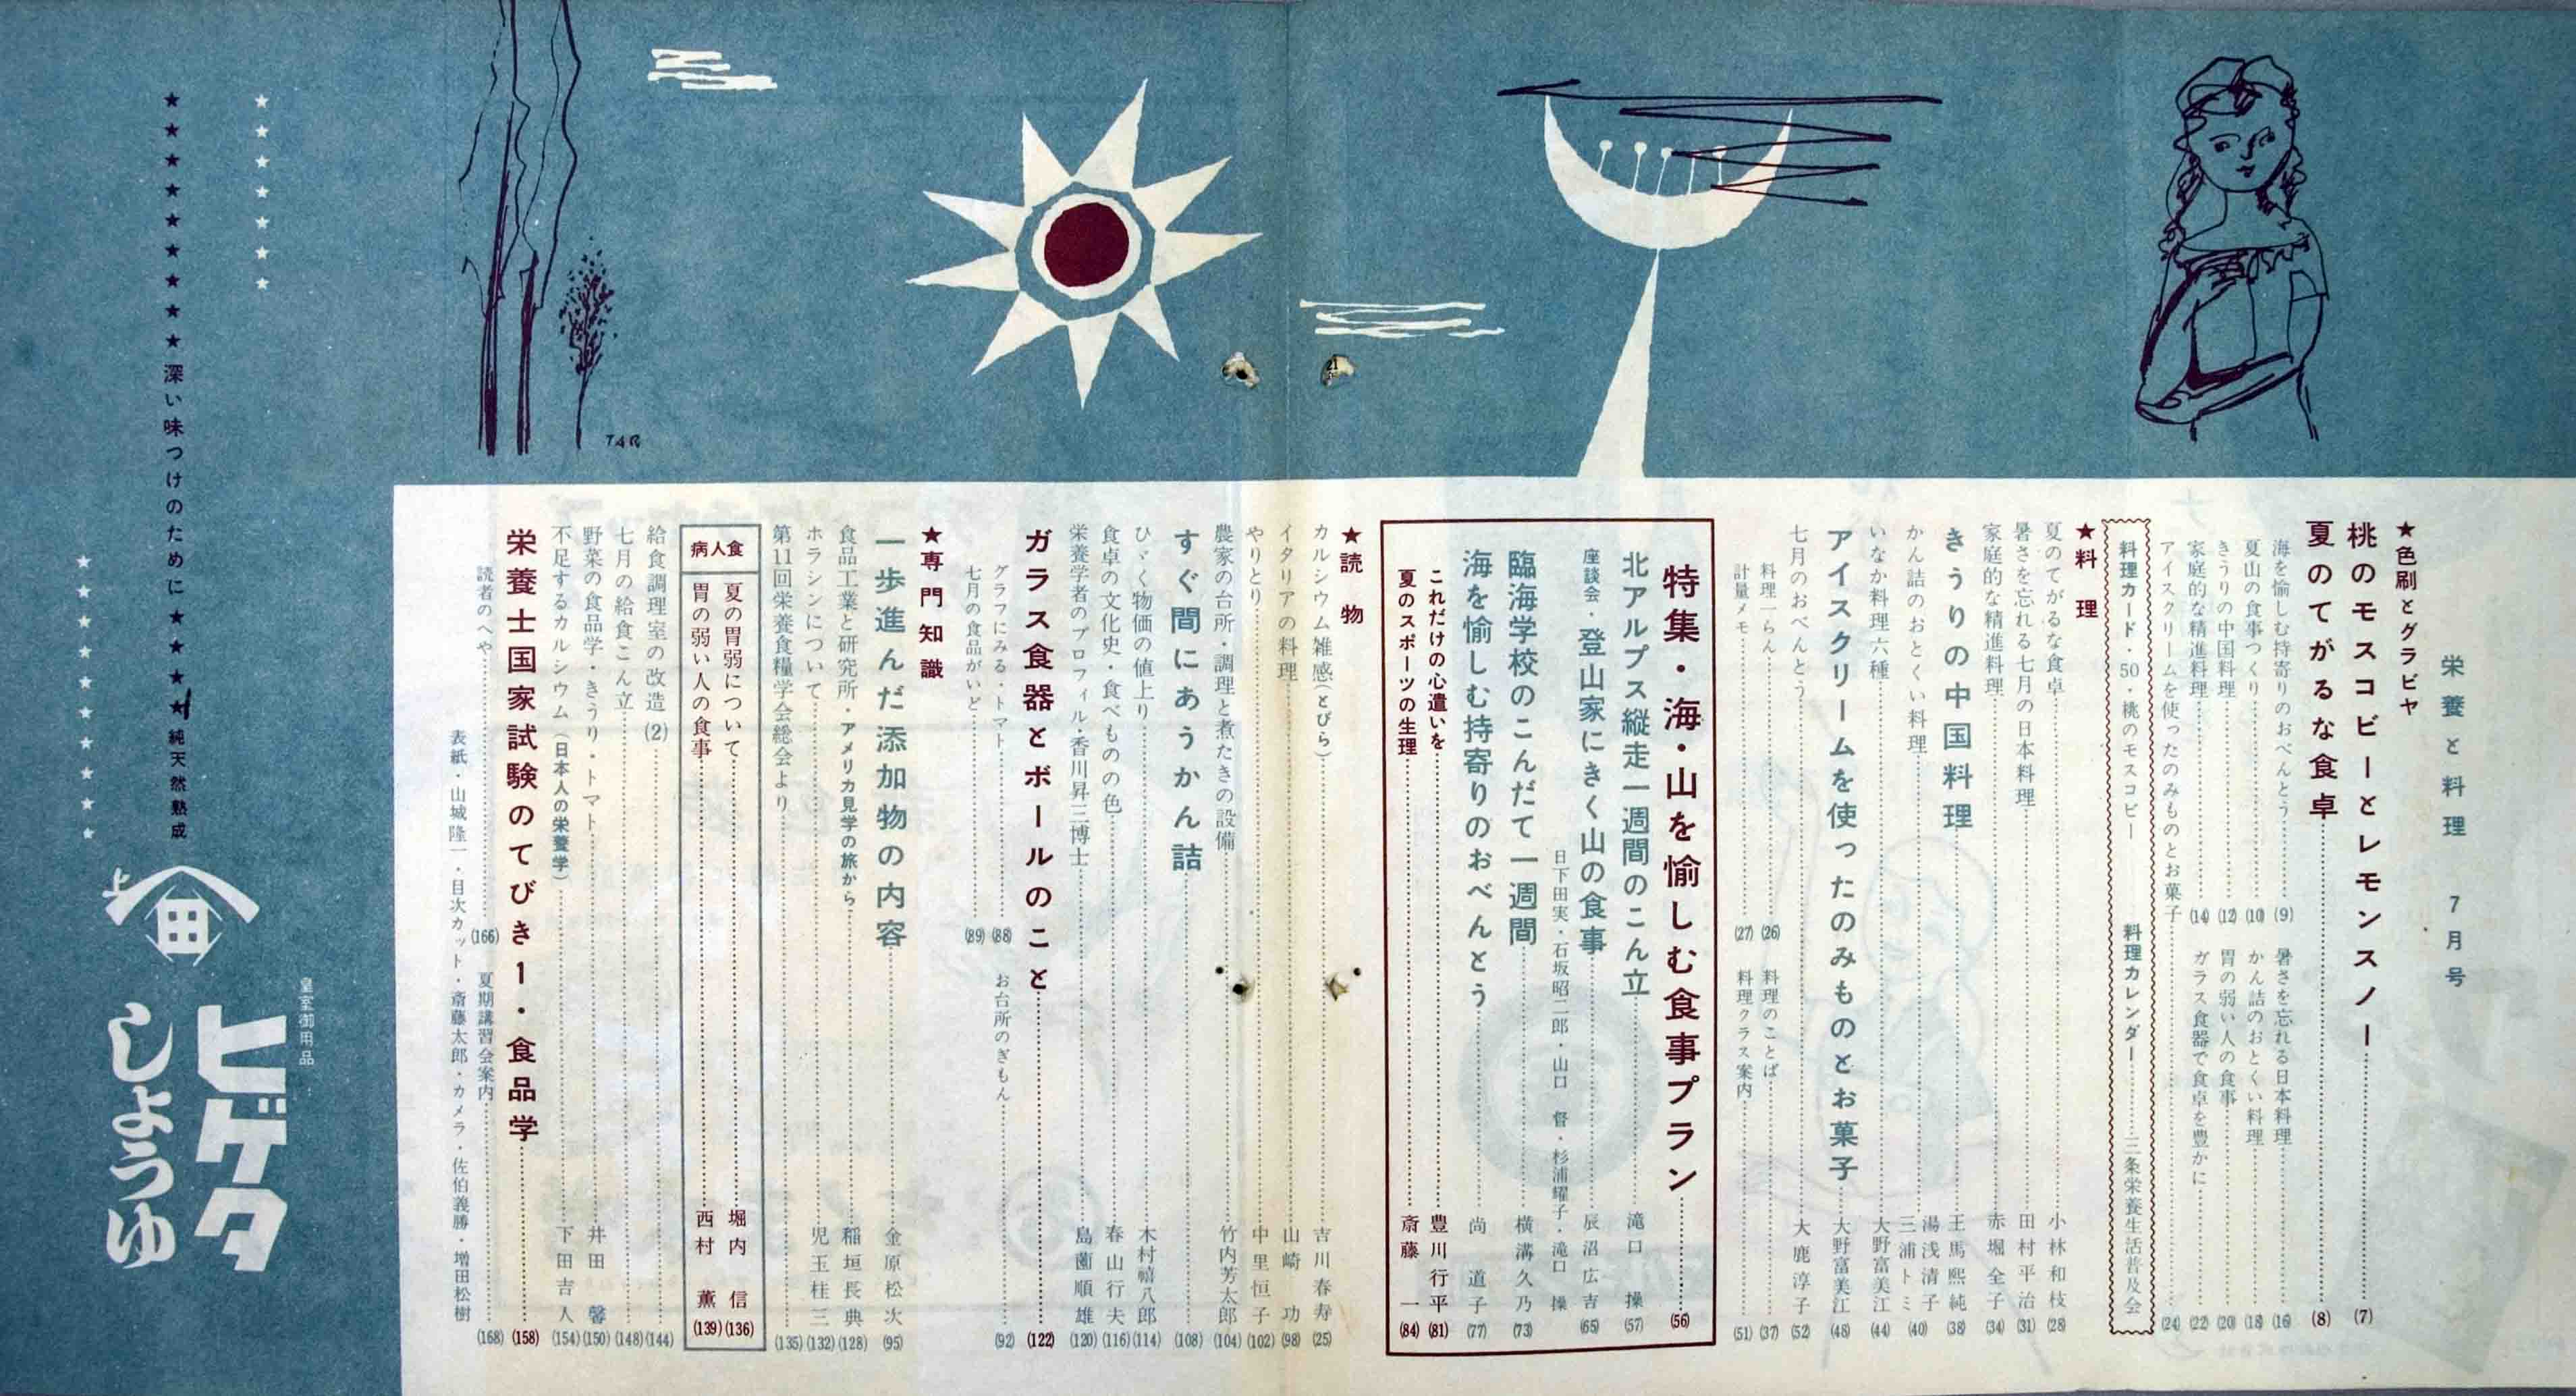 栄養と料理 7月号
★色刷とグラビヤ
桃のモスコビーとレモンスノー (7)
夏のてがるな食卓 (8)
海を愉しむ持寄りのおべんとう (9)
暑さを忘れる日本料理 (16)
夏山の食事つくり (10)
かん詰のおとくい料理 (18)
きうりの中国料理 (12)
胃の弱い人の食事 (20)
家庭的な精進料理 (14)
ガラス食器で食卓を豊かに (22)
アイスクリームを使ったのみものとお菓子 (24)
料理カード・50・桃のモスコビー 料理カレンダー 三条栄養生活普及会
★料理
夏のてがるな食卓 小林和枝 (28)
暑さを忘れる七月の日本料理 田村平治 (31)
家庭的な精進料理 赤堀全子 (34)
きうりの中国料理 王馬熙純 (38)
かん詰のおとくい料理 湯浅清子 三浦トミ (40)
いなか料理六種 大野富美江 (44)
アイスクリームを使ったのみものとお菓子 大野富美江 (48)
七月のおべんとう 大鹿淳子 (52)
料理一らん (26)
料理のことば (37)
計量メモ (27)
料理クラス案内 (51)
特集・海・山を愉しむ食事プラン (56)
北アルプス縦走一週間のこん立 滝口操 (57)
座談会・登山家にきく山の食事 辰沼広吉 (65)
日下田実・石坂昭二郎・山口督・杉浦耀子・滝口操
臨海学校のこんだて一週間 横溝久乃 (73)
海を愉しむ持寄りのおべんとう 尚道子 (77)
これだけの心遣いを 豊川行平 (81)
夏のスポーツの生理 斎藤一 (84)
★読物
カルシウム雑感(とびら) 吉川春寿 (25)
イタリアの料理 山崎功 (98)
やりとり 中里恒子 (102)
農家の台所・調理と煮たきの設備 竹内芳太郎 (104)
すぐ間にあうかん詰 (108)
ひゞく物価の値上り 木村禧八郎 (114)
食卓の文化史・食べものの色 春山行夫 (116)
栄養学者のプロフィル・香川昇三博士 島薗順雄 (120)
ガラス食器とボールのこと (122)
グラフにみる・トマト (88)
お台所のぎもん (92)
七月の食品がいど (89)
★専門知識
一歩進んだ添加物の内容 金原松次 (95)
食品工業と研究所・アメリカ見学の旅から 稲垣長典 (128)
ホラシンについて 児玉桂三 (132)
第11回栄養食糧学会総会より (135)
病人食
夏の胃弱について 堀内信 (136)
胃の弱い人の食事 西村薫 (139)
給食調理室の改造(2) (144)
七月の給食こん立 (148)
野菜の食品学・きうり・トマト 井田馨 (150)
不足するカルシウム(日本人の栄養学) 下田吉人 (154)
栄養士国家試験のてびきー・食品学 (158)
読者のへや (166)
夏期講習会案内 (168)
表紙・山城隆一・目次カット・斎藤太郎・カメラ・佐伯義勝・増田松樹
TAR
21
★★★★★★★
★★★★★★★★★深い味つけのために★★★★純天然熟成
★★★★★★★★★★
上
田
皇室御用品
ヒゲタ
しょうゆ